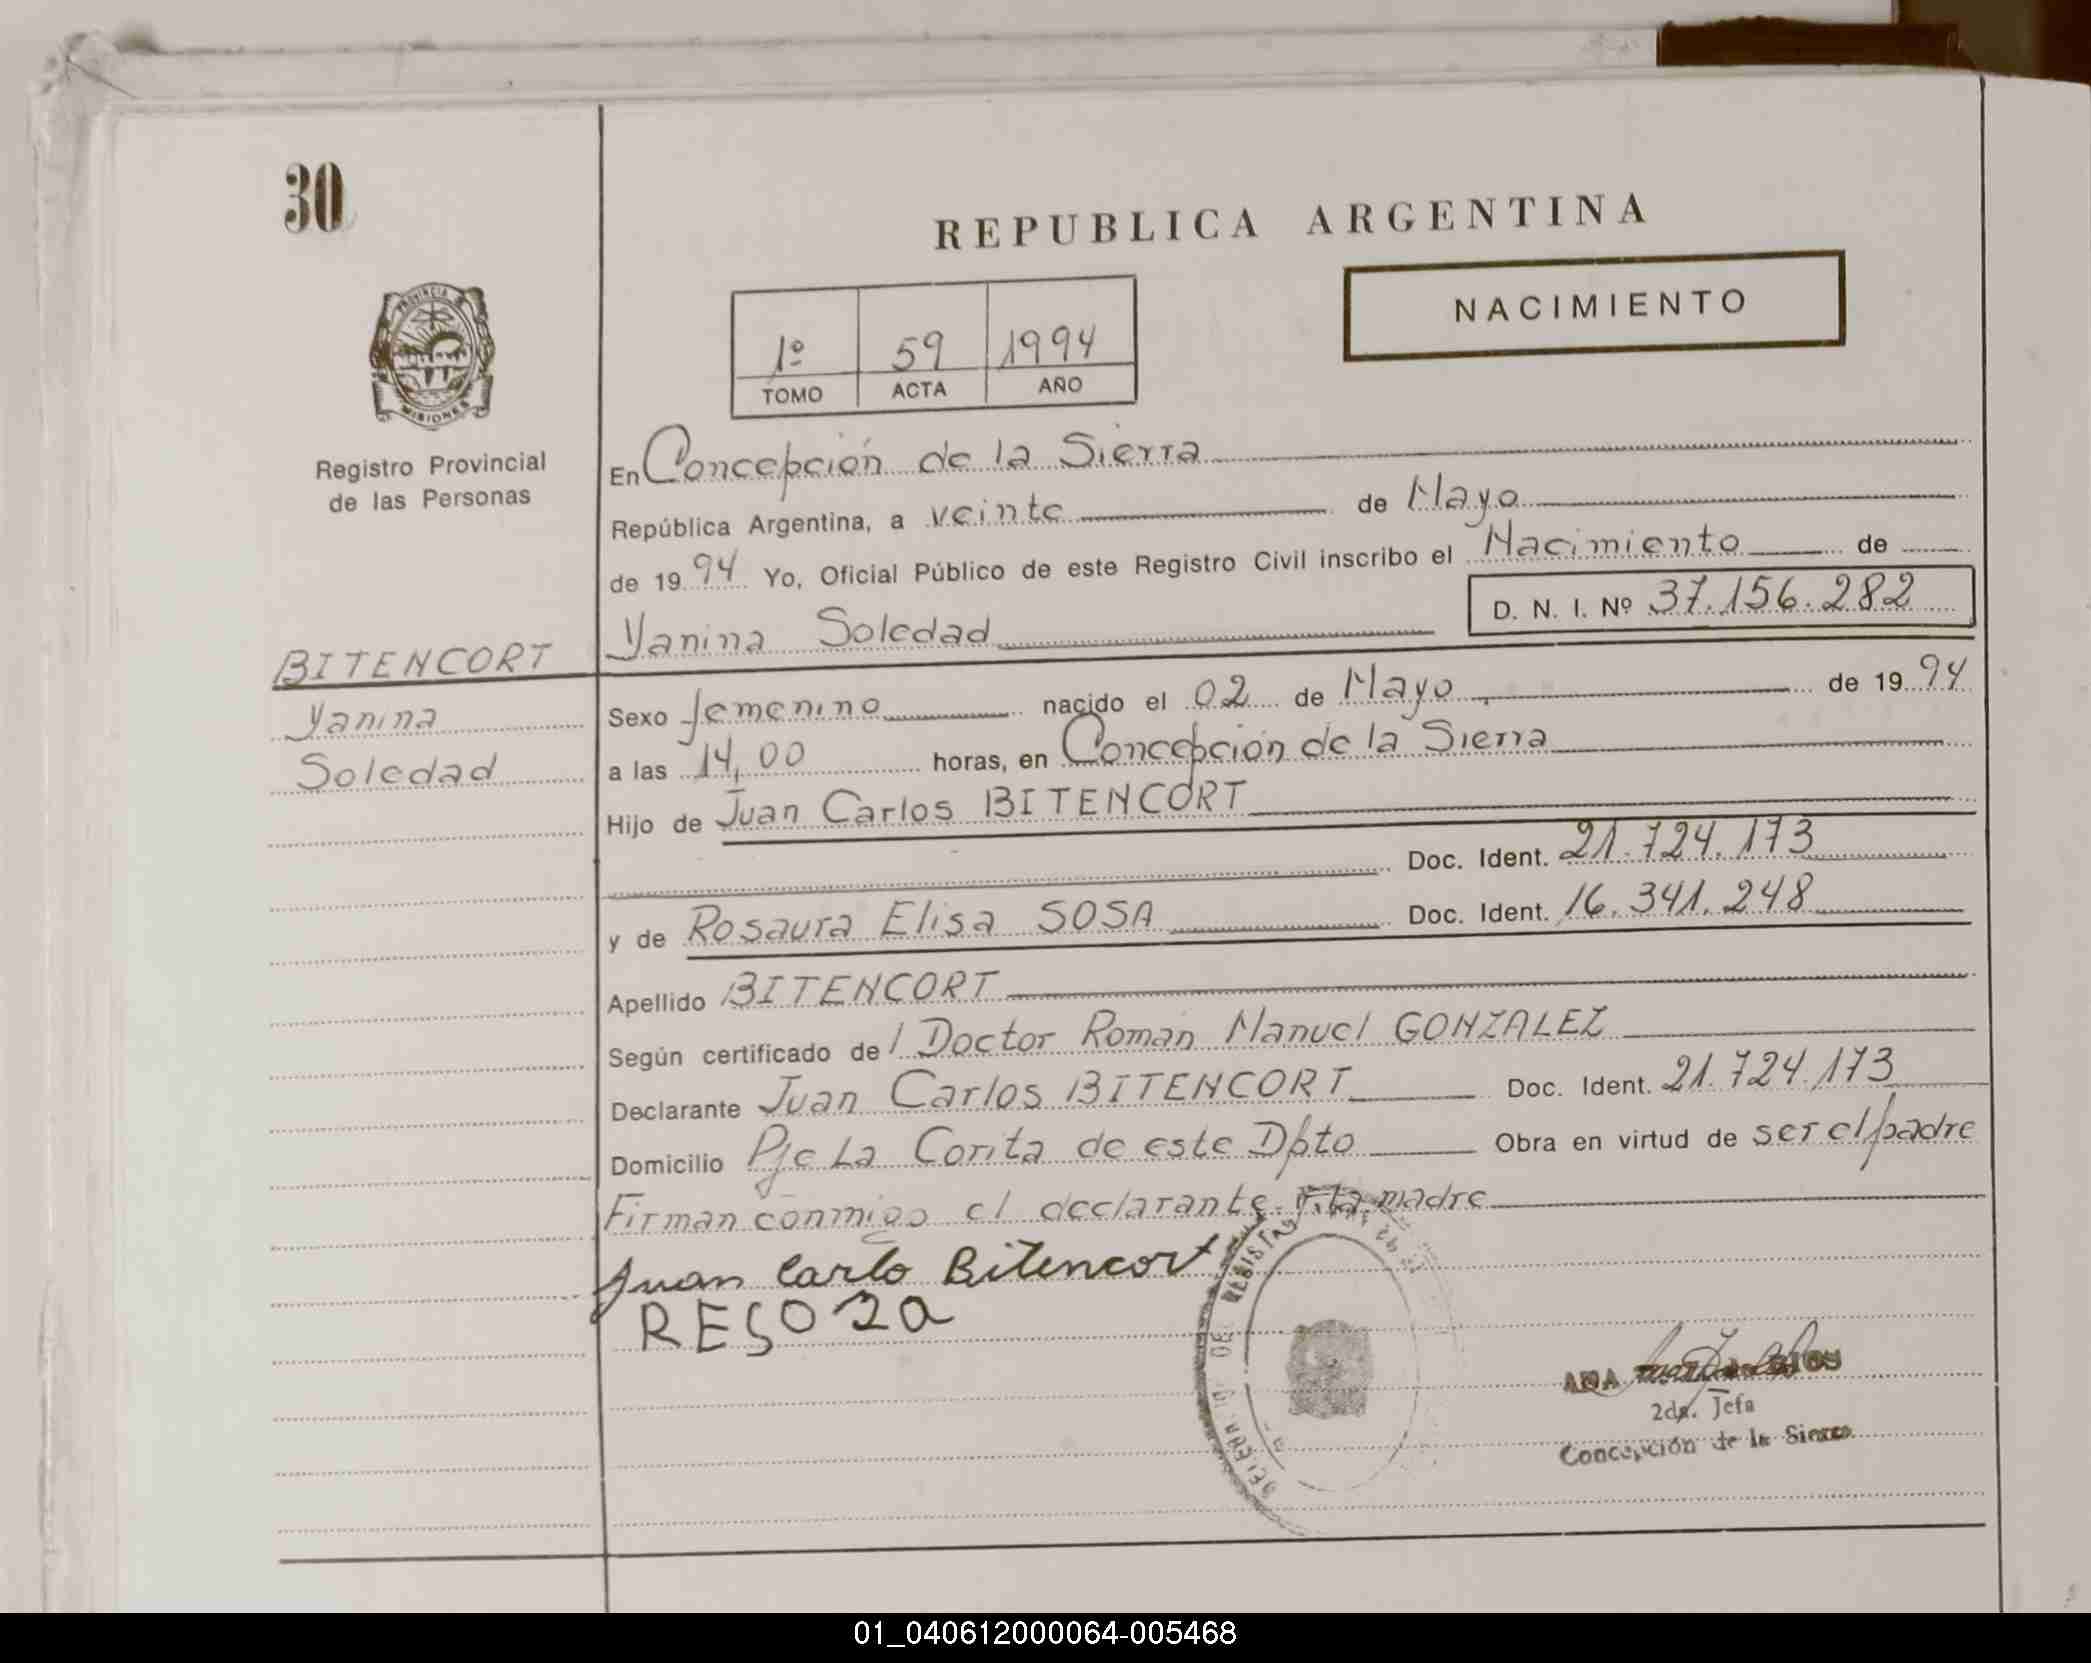 30
REPUBLICA ARGENTINA
NACIMIENTO
1º 59 1994
TOMO ACTA AÑO
PROVINCIA DE
MISIONES
Registro Provincial
de las Personas
En Concepción de la Sierra
República Argentina, a veinte de Mayo
de 1994 Yo, Oficial Público de este Registro Civil inscribo el Nacimiento de
D. N. I. Nº 37.156.282
Yanina Soledad
BITENCORT
Yanina
Soledad
Sexo femenino nacido el 02 de Mayo de 1994
a las 14,00 horas, en Concepción de la Sierra
Hijo de Juan Carlos BITENCORT
Doc. Ident. 21.724.173
y de Rosaura Elisa SOSA Doc. Ident. 16.341.248
Apellido BITENCORT
Según certificado del Doctor Román Manuel GONZALEZ
Declarante Juan Carlos BITENCORT Doc. Ident. 21.724.173
Domicilio Pje La Corita de este Dpto Obra en virtud de ser el padre
Firman conmigo el declarante y la madre
Juan Carlo Bitencort
RESO
ANA
2da. Jefa
Concepción de la Sierra
01_040612000064-005468